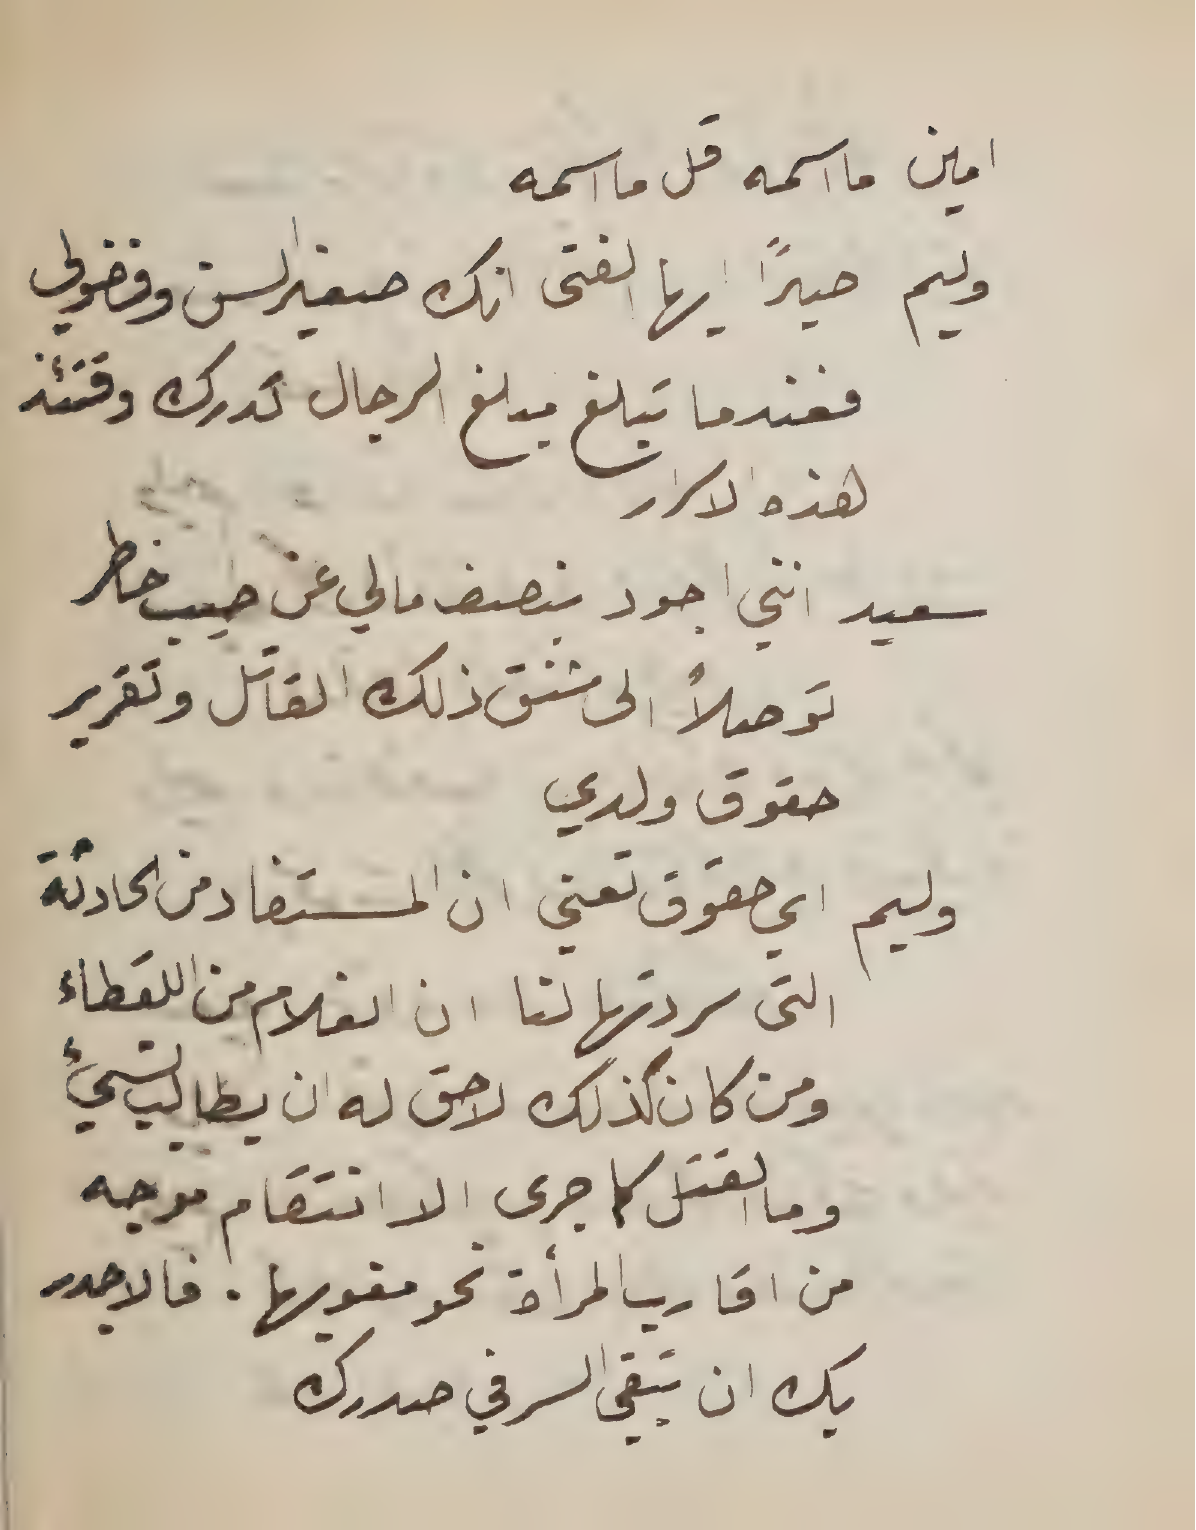 امين ما اسمه قل ما اسمه
وليم صبرًا ايها الفتى انك صغير السن وفضولي
فعندما تبلغ مبلغ الرجال تدرك وقتئذ
هذه الاسرار
سعيد انني اجود بنصف مالي عن طيب خاطر
توصلاً الى شنق ذلك القاتل وتقرير
حقوق ولدي
وليم اي حقوق تعني ان المستفاد من الحادثة
التى سردتها لنا ان الغلام من اللقطاء
ومن كان كذلك لا حق له ان يطالب بشيء
وما القتل كما جرى الا انتقام موجه
من اقارب المرأة نحو مغويها . فالاجدر
بك ان تبقي السر في صدرك